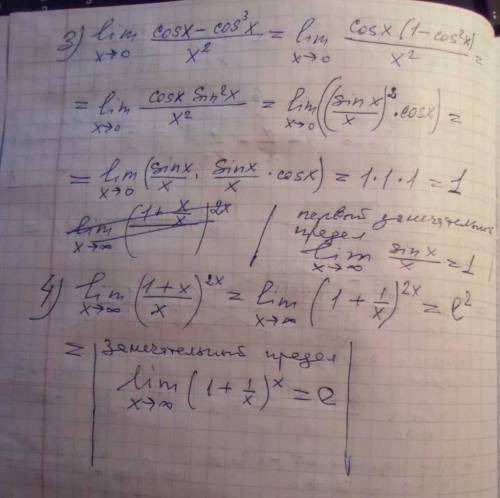 3) lim x→0 (cosx - cos³x)/x² = lim x→0 cosx (1 - cos²x)/x² =
= lim x→0 cosx sin²x/x² = lim x→0 ((sin x/x)² · cosx) =
= lim x→0 (sinx/x · sinx/x · cosx) = 1·1·1 = 1
lim x→∞ (1+x/x)^2x
первый замечательный
предел
lim x→∞ sinx/x = 1
4) lim x→∞ ((1+x)/x)^2x = lim x→∞ (1 + 1/x)^2x = e²
= | Замечательный предел
lim x→∞ (1 + 1/x)^x = e |